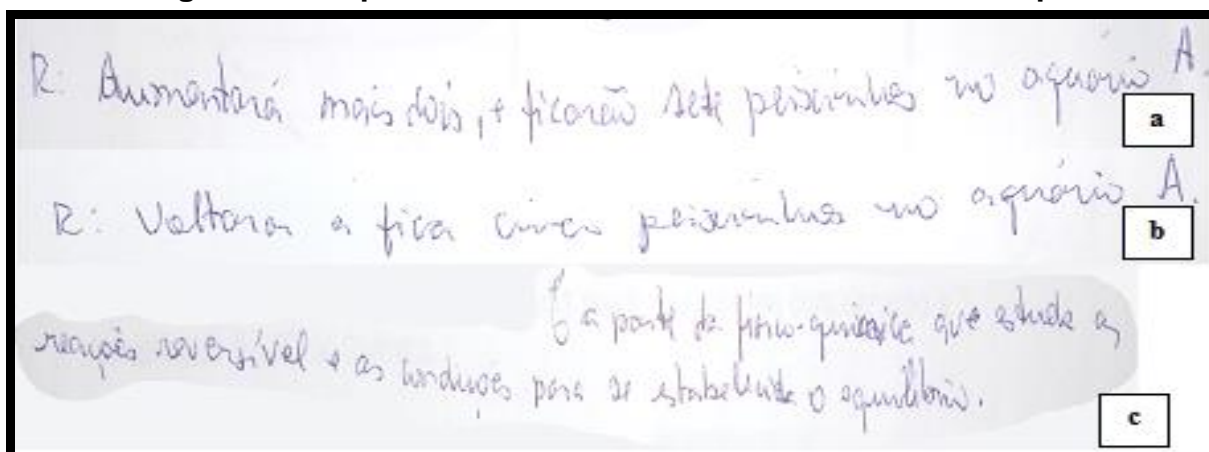 R: Aumentará mais dois, e ficarão sete peixinhos no aquário A.
a
R: Voltara a fica cinco peixinhos no aquário A.
b
É a parte da físico-química que estuda as
reações reversível e as condições para se estabelecida o equilíbrio.
c